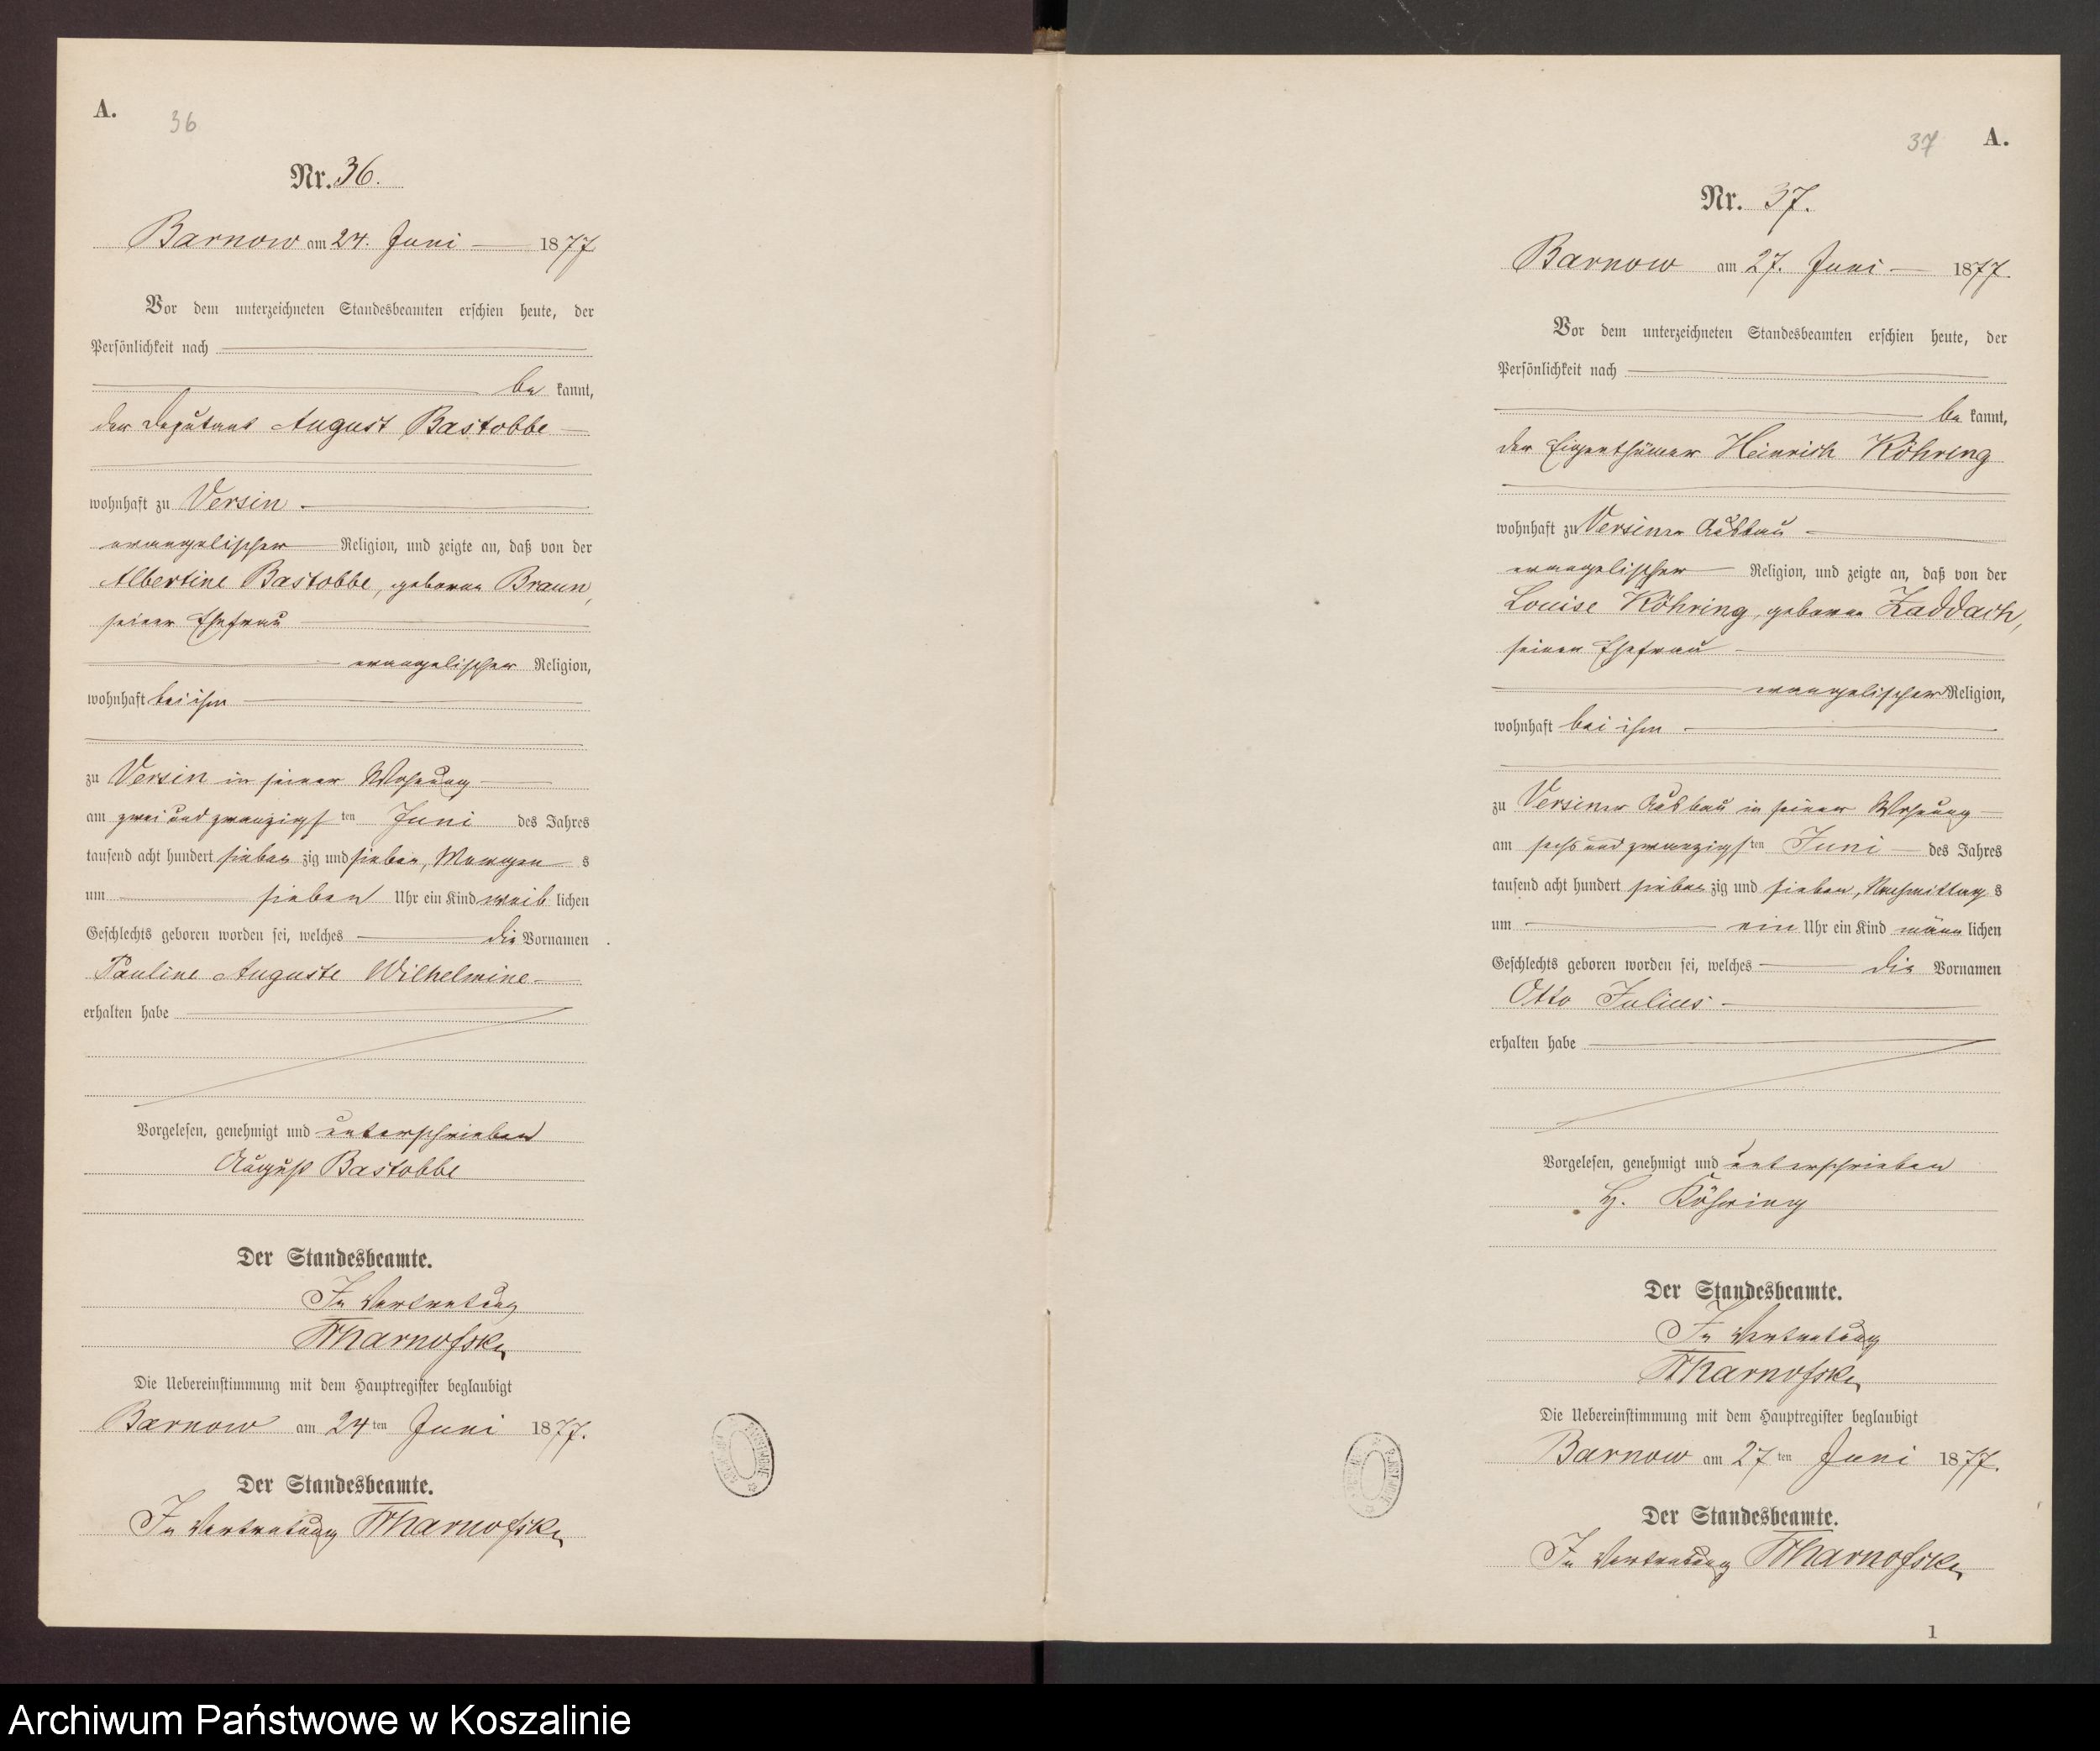 A.
36
Nr. 36.
Barnow am 24. Juni 1877
Vor dem unterzeichneten Standesbeamten erschien heute, der
Persönlichkeit nach
be kannt,
der Deputant August Bastobbe
wohnhaft zu Versin
evangelischer Religion, und zeigte an, daß von der
Albertine Bastobbe, geborne Braun,
seiner Ehefrau
evangelischer Religion,
wohnhaft bei ihm
zu Versin in seiner Wohnung
am zwei und zwanzigsten Juni des Jahres
tausend acht hundert siebenzig und sieben, Morgens
um sieben Uhr ein Kind weiblichen
Geschlechts geboren worden sei, welches die Vornamen
Pauline Auguste Wilhelmine
erhalten habe
Vorgelesen, genehmigt und unterschrieben
August Bastobbe
Der Standesbeamte.
In Vertretung
Die Uebereinstimmung mit dem Hauptregister beglaubigt
Barnow am 24ten Juni 1877.
Der Standesbeamte.
In Vertretung
37 A.
Nr. 37.
Barnow am 27. Juni 1877.
Vor dem unterzeichneten Standesbeamten erschien heute, der
Persönlichkeit nach
be kannt,
der Eigenthümer Heinrich Köhring
wohnhaft zu Versiner Ausbau
evangelischer Religion, und zeigte an, daß von der
Louise Köhring, geborne Zaddach,
seiner Ehefrau
evangelischer Religion,
wohnhaft bei ihm
zu Versiner Ausbau in seiner Wohnung
am sechs und zwanzigsten Juni des Jahres
tausend acht hundert siebenzig und sieben, Nachmittags
um ein Uhr ein Kind männlichen
Geschlechts geboren worden sei, welches die Vornamen
Otto Julius
erhalten habe
Vorgelesen, genehmigt und unterschrieben
H. Köhring
Der Standesbeamte.
In Vertretung
Die Uebereinstimmung mit dem Hauptregister beglaubigt
Barnow am 27ten Juni 1877.
Der Standesbeamte.
In Vertretung
1
Archiwum Państwowe w Koszalinie